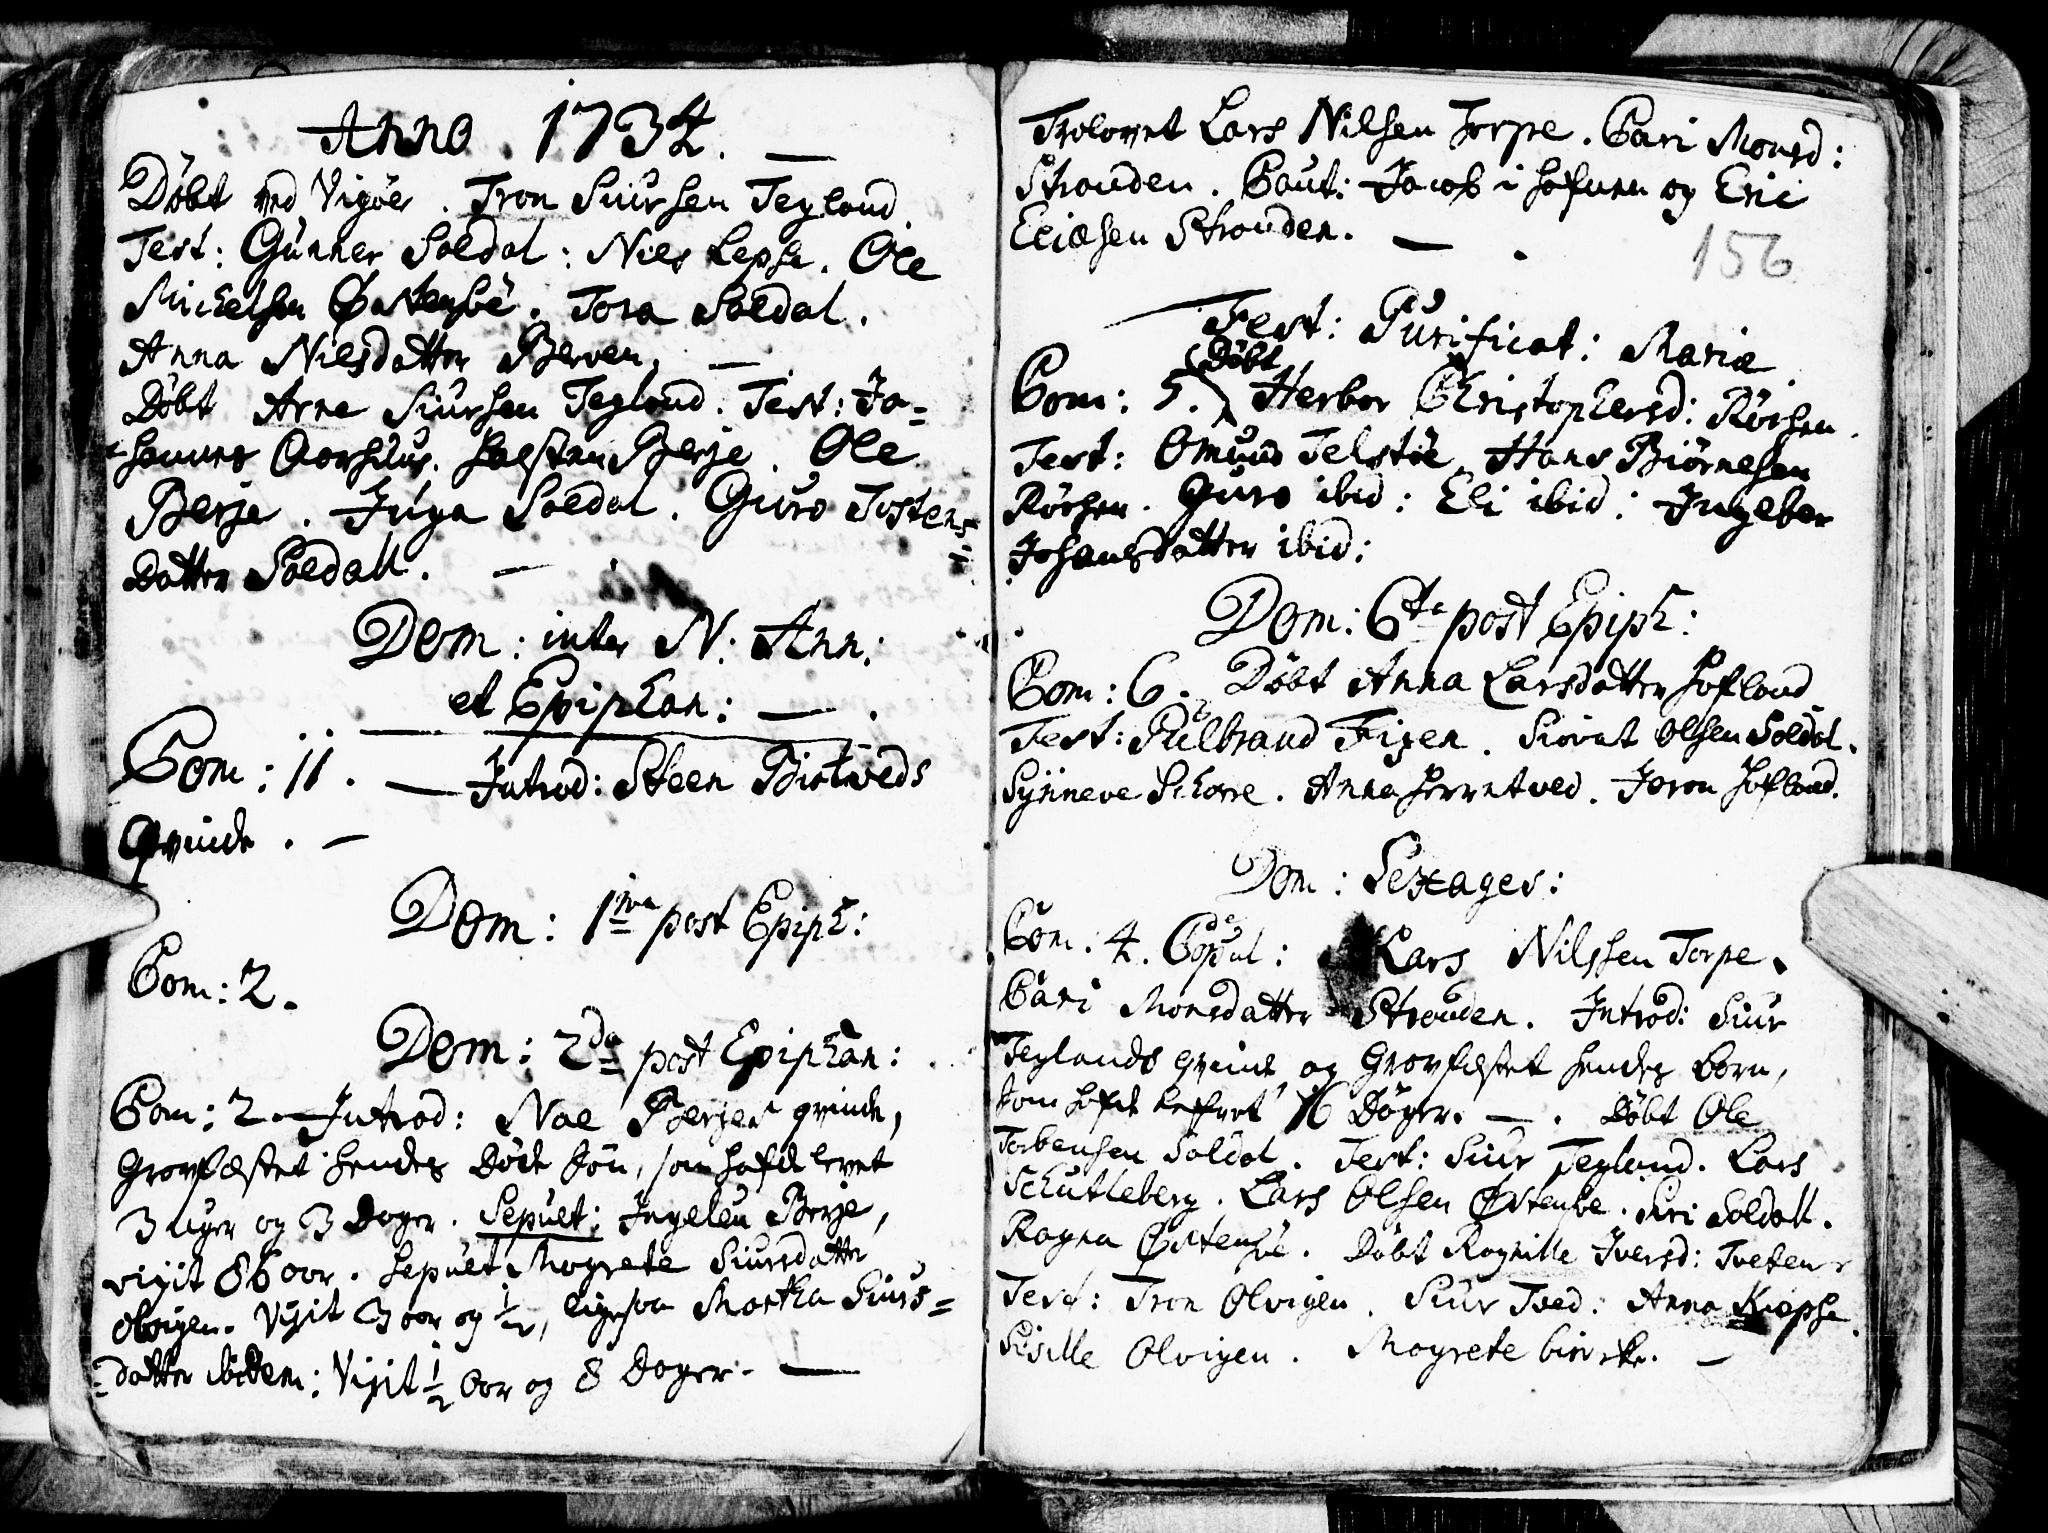 Anno 1734.
Døbt ved Vigøer. Tron Siursen Tegland.
Test: Gunner Soldal: Niels Lepse. Ole
Michelsen Østensbe. Tora Soldal.
Anna Nielsdatter Berven.
Døbt Arne Siursen Tegland. Test: Jo=
hannes Aarhuus. Halsten Berje. Ole
Berje. Inga Soldal. Guro Tosten=
datter Soldall.
Dom: inter N: Ann:
et Epiphan:
Com: 11. Introd: Steen Birtveds
Qvinde.
Dom: 1ma post Epiph:
Com: 2.
Dom: 2da post Epiphan:
Com: 2. Introd: Noe Berjes qvinde,
Gravfæstet hendes Døde Søn, som hafde levet
3 uger og 3 Dager. Sepult: Ingeleu Berje,
vixit 86 aar. Sepult Magrete Siursdatter
Olvigen. Vixit 3 aar og 1/2, ligesaa Martha Siurs=
=datter ibidem: Vixit 1/2 Aar og 8 Dager.
Trolovet Lars Nilsen Torpe. Cari Monsd:
Stranden. Caut: Jacob i Hafnen og Eric
Ericksen Stranden.
156
Fest: Purificat: Mariæ
Com: 5. Døbt Herbor Christophersd: Røisen.
Test: Omund Telstøe. Hans Biørnesen
Røisen. Guro ibid: Eli ibid: Ingebor
Johansdatter ibid:
Dom: 6ta post Epiph:
Com: 6. Døbt Anna Larsdatter Hofland
Test: Gulbrand Figen. Siovat Olsen Soldal.
Synneve Schorre. Anna Herrntved. Joron Hofland.
Dom: Sexages:
Com. 4. Copul: Lars Nilssen Torpe.
Cari Monsdatter Stranden. Introd: Siur
Teglands qvinde og Gravfæstet hendes Born,
som hafde lefvet 16 Døger. Døbt Ole
Torbensen Soldal. Test: Siur Tegland. Lars
Schutleberg. Lars Olsen Østensbe. Siri Soldall.
Ragna Østensbe. Døbt Ragnille Iversd: Tveten
Test: Tron Olvigen. Siur Tved: Anna Kiepse.
Sisille Olvigen. Magrete